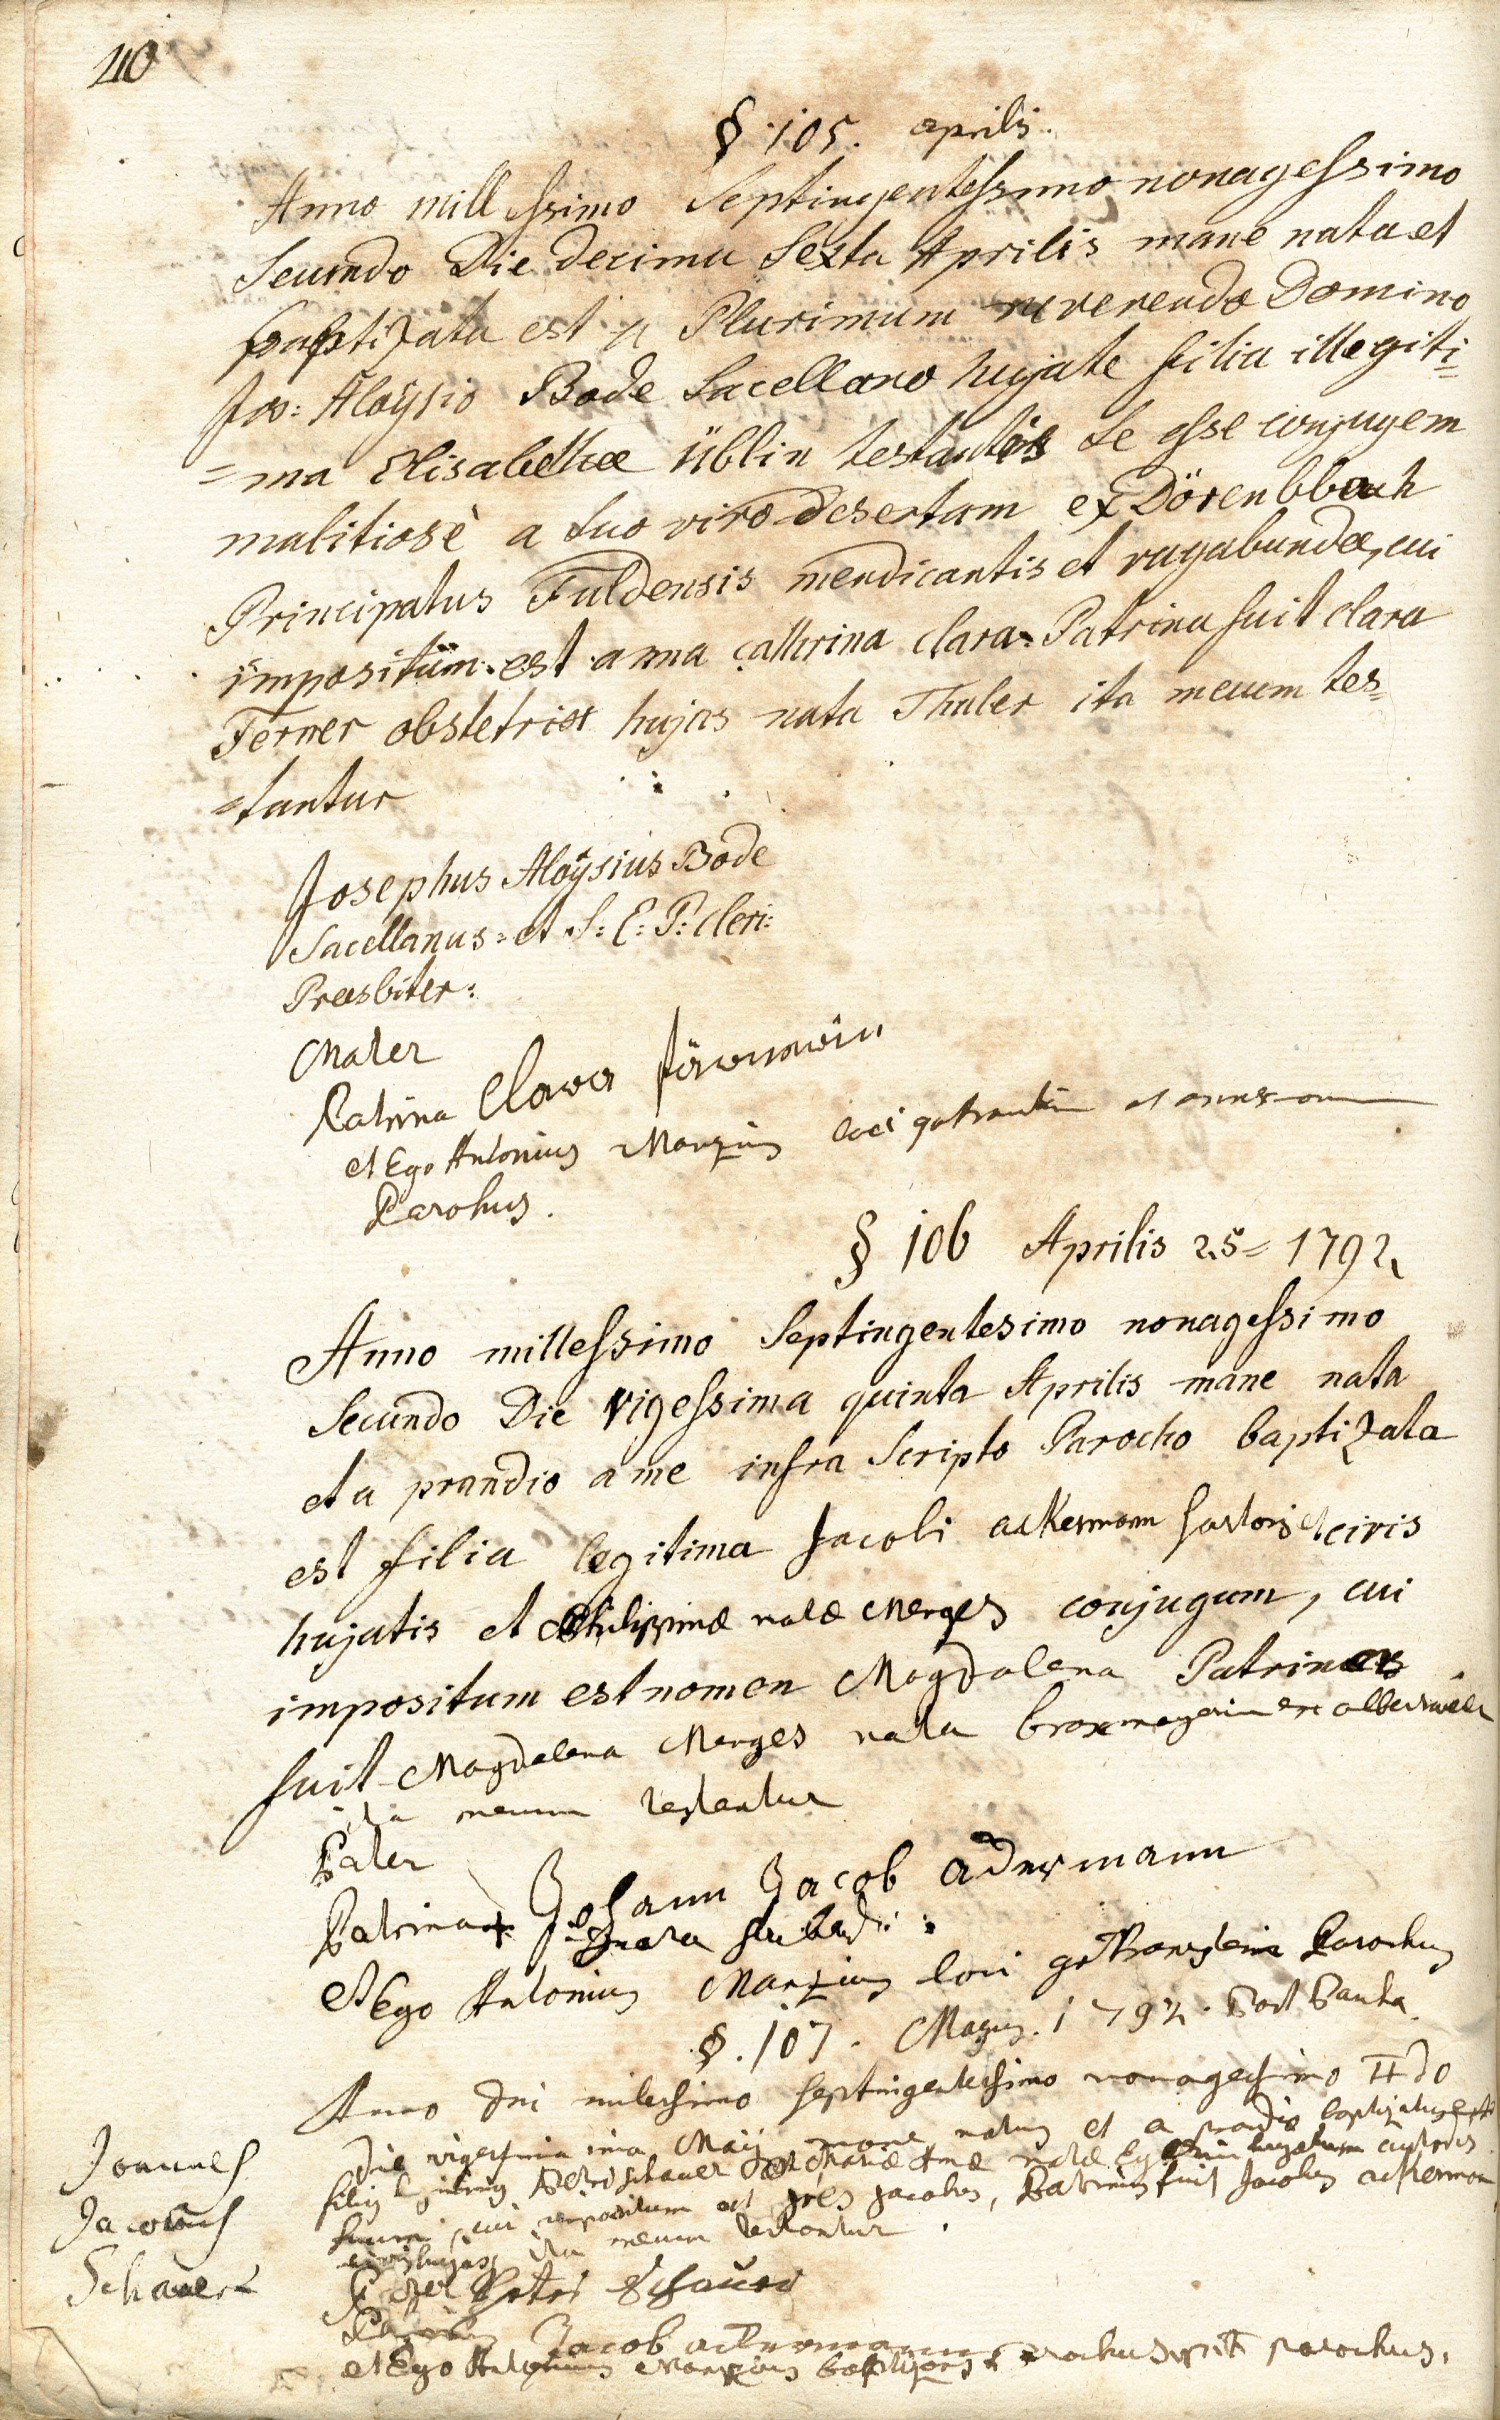 40
§ 105. aprilis.
Anno millessimo Septingentessimo nonagessimo
Secundo Die decima Sexta Aprilis mane nata et
baptizata est a Plurimum reverendo Domino
Jos: Aloÿsio Bode Sacellano hujate filia illegiti=
=ma Elisabethae üblin testantis se esse conjugem
malitiosè a suo viro desertam ex Dörenbbach
Principatus Fuldensis mendicantis et vagabundae, cui
impositüm est anna catherina clara Patrina fuit clara
Ferner obstetrix hujas nata Thaler ita mecum tes=
=tantur
Josephus Aloÿsius Bode
Sacellanus et S: E: P: cleri:
Praesbiter:
Mater
Patrina Clara
et Ego Antonius Marzius loci
Parohus.
§ 106 Aprilis 25= 1792
Anno millessimo Septingentesimo nonagessimo
Secundo Die vigessima quinta Aprilis mane nata
et a prandio a me infra Scripto Parocho baptizata
est filia legitima Jacobi ackermann sartoris et civis
hujatis et Philippinae natae Merges conjugum, cui
impositum est nomen Magdalena Patrina
fuit Magdalena Merges nata ex
ita mecum testantur
Pater
Johann Jacob ackermann
Patrina +
et Ego Antonius Marzius loci Parochus
§. 107. Majus. 1792.
Anno dni milessimo septingentessimo nonagessimo IIdo
die vigessima ima Maÿ mane natus et a prandio baptizatus est
filius legitimus Petri schauer et Mariae Annae natae
cui impositum est Jacobus, Patrinus fuit Jacobus ackermann
civis hujas ita mecum testantur.
Joannes
Jacobus
Schauer
Pater Peter Schauer
Patrinus
Jacob ackermann
et Ego Antonius Marzius baptizans parochus.